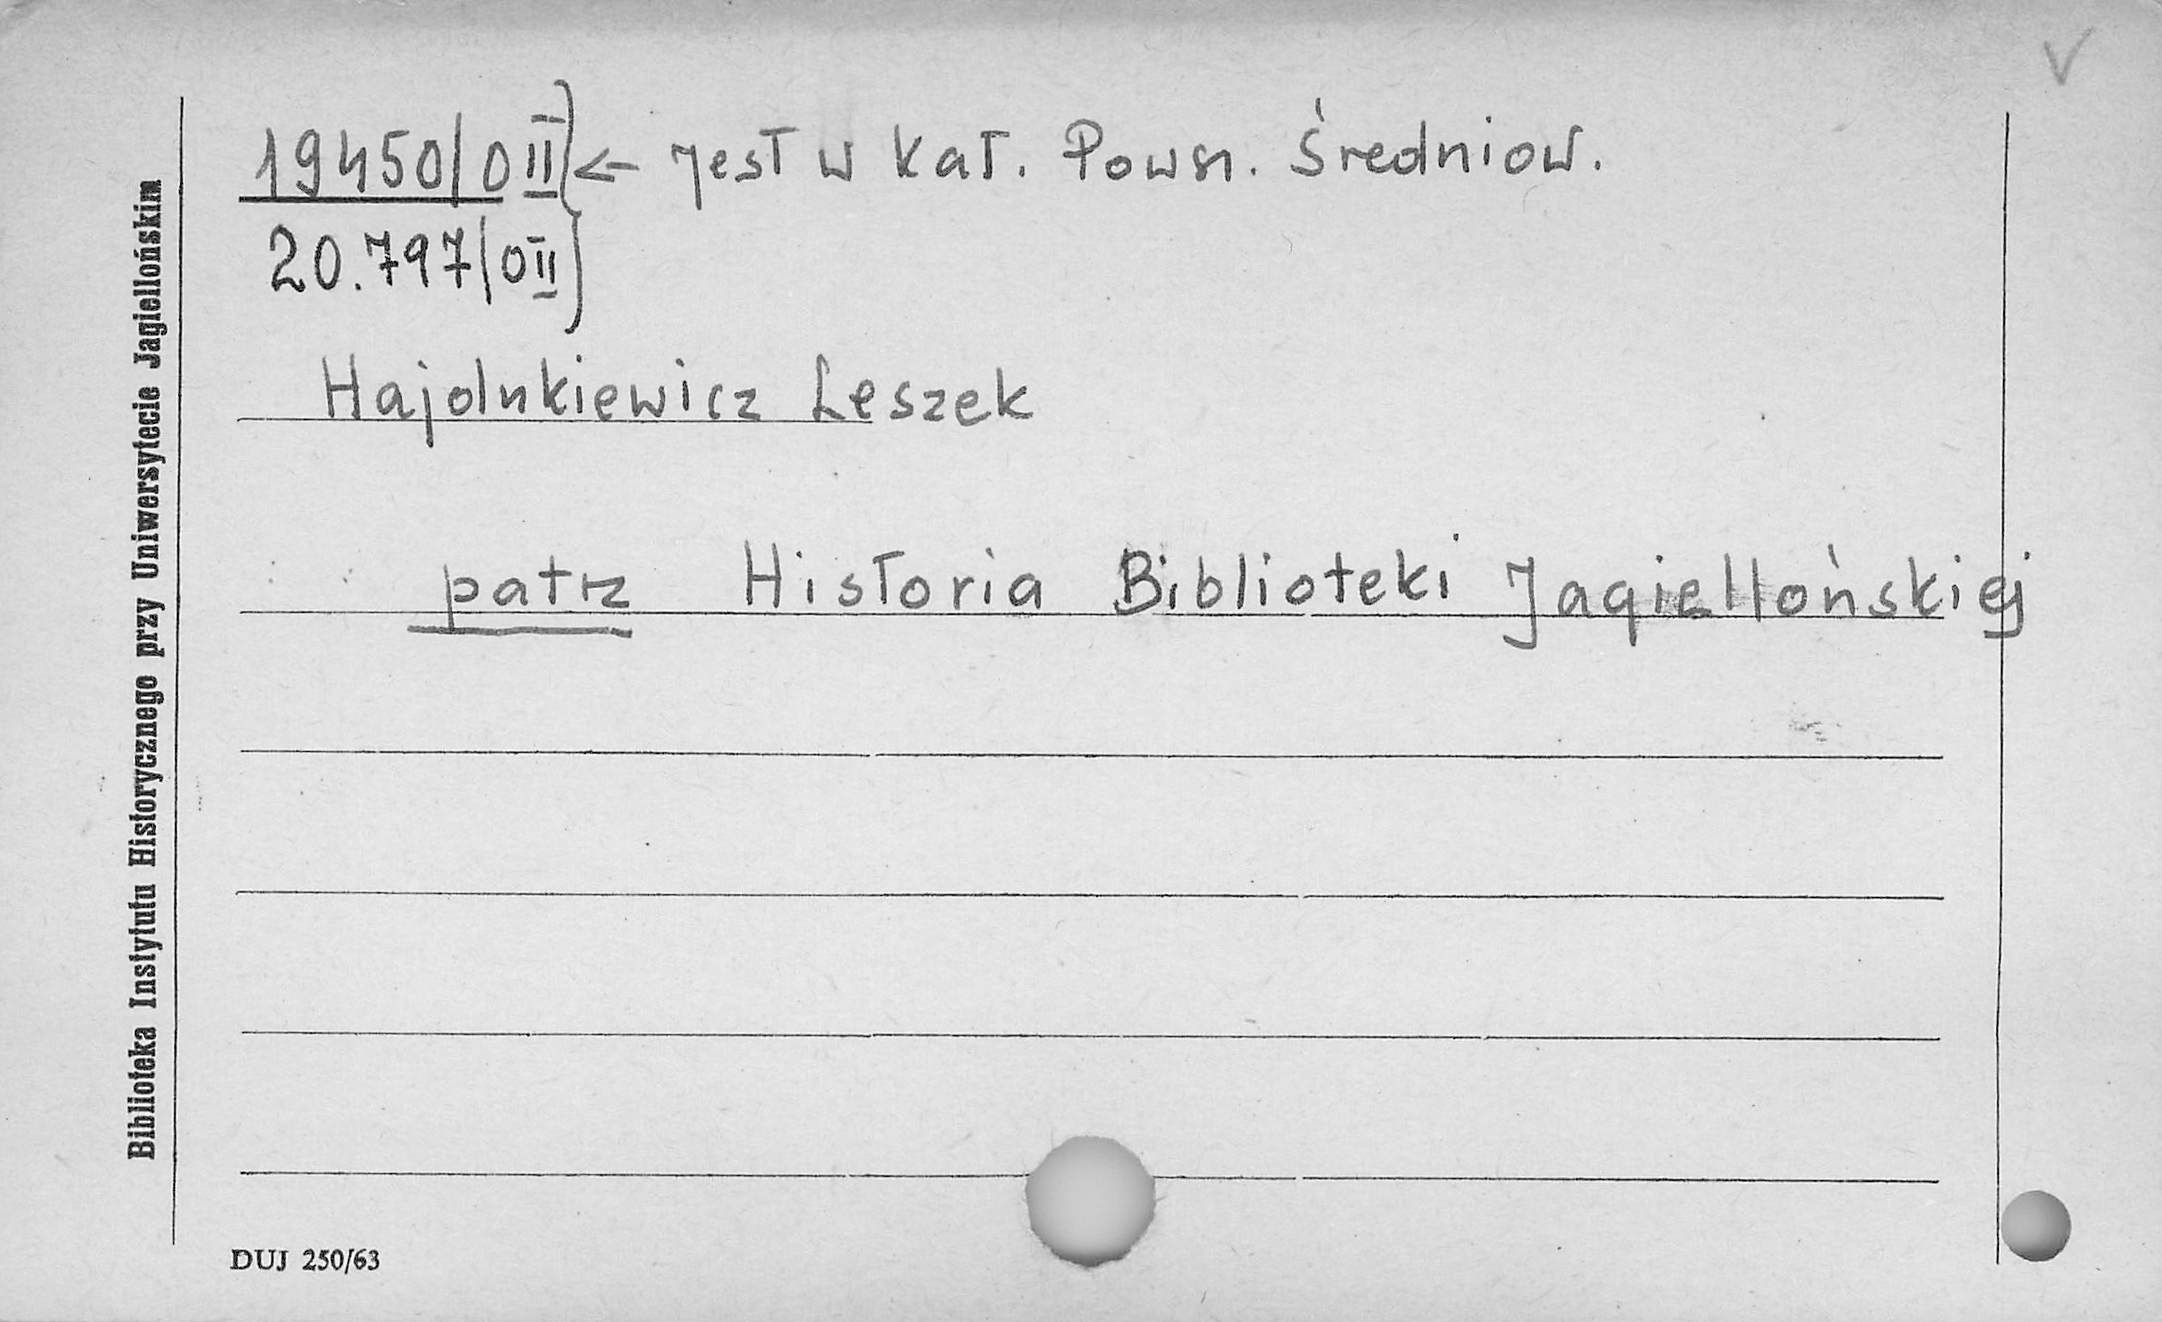 19450/0 II } ← jest w kat. Powsz. średniow.
20.797/0 II
Hajdukiewicz Leszek
patrz Historia Biblioteki Jagiellońskiej
Biblioteka Instytutu Historycznego przy Uniwersytecie Jagiellońskim
DUJ 250/63